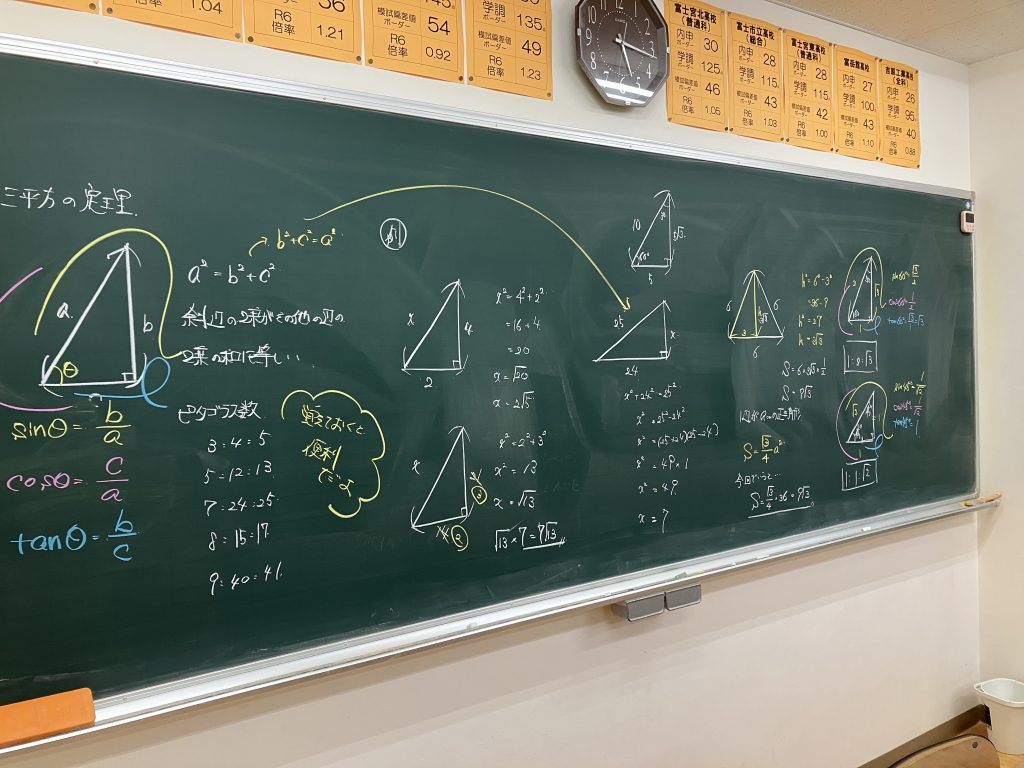 1.04
R6
倍率
36
R6
倍率
1.21
模試偏差値
ボーダー
54
R6
倍率
0.92
学調
ボーダー
135
模試偏差値
ボーダー
49
R6
倍率
1.23
富士宮北高校
(普通科)
内申
ボーダー
30
学調
ボーダー
125
模試偏差値
ボーダー
46
R6
倍率
1.05
富士市立高校
(総合)
内申
ボーダー
28
学調
ボーダー
115
模試偏差値
ボーダー
43
R6
倍率
1.03
富士宮東高校
(普通科)
内申
ボーダー
28
学調
ボーダー
115
模試偏差値
ボーダー
42
R6
倍率
1.00
富岳館高校
内申
ボーダー
27
学調
ボーダー
100
模試偏差値
ボーダー
43
R6
倍率
1.10
吉原工業高校
内申
ボーダー
26
学調
ボーダー
95
模試偏差値
ボーダー
40
R6
倍率
0.88
三平方の定理
a
b
θ
sinθ = b/a
cosθ = c/a
tanθ = b/c
b²+c²=a²
a² = b²+c²
斜辺の2乗がその他の辺の
2乗の和に等しい
ピタゴラス数
3:4:5
5:12:13
7:24:25
8:15:17
9:40:41
覚えておくと
便利
だよ
例
x
4
2
x²=4²+2²
=16+4
=20
x=√20
x=2√5
x
x²=2²+3²
x²=13
x=√13
√13×7=7√13
10
5√3
5
25
x
24
x²+24²=25²
x²=25²-24²
x²=(25+24)(25-24)
x²=49×1
x²=49
x=7
6
6
3
6
h²=6²-3²
=36-9
h²=27
h=3√3
S=6×3√3×1/2
S=9√3
1辺がaの正三角形
S=√3/4 a²
今回でいうと…
S=√3/4×36=9√3
sin60°=√3/2
cos60°=1/2
tan60°=√3/1=√3
1:2:√3
sin45°=1/√2
cos45°=1/√2
1:1:√2